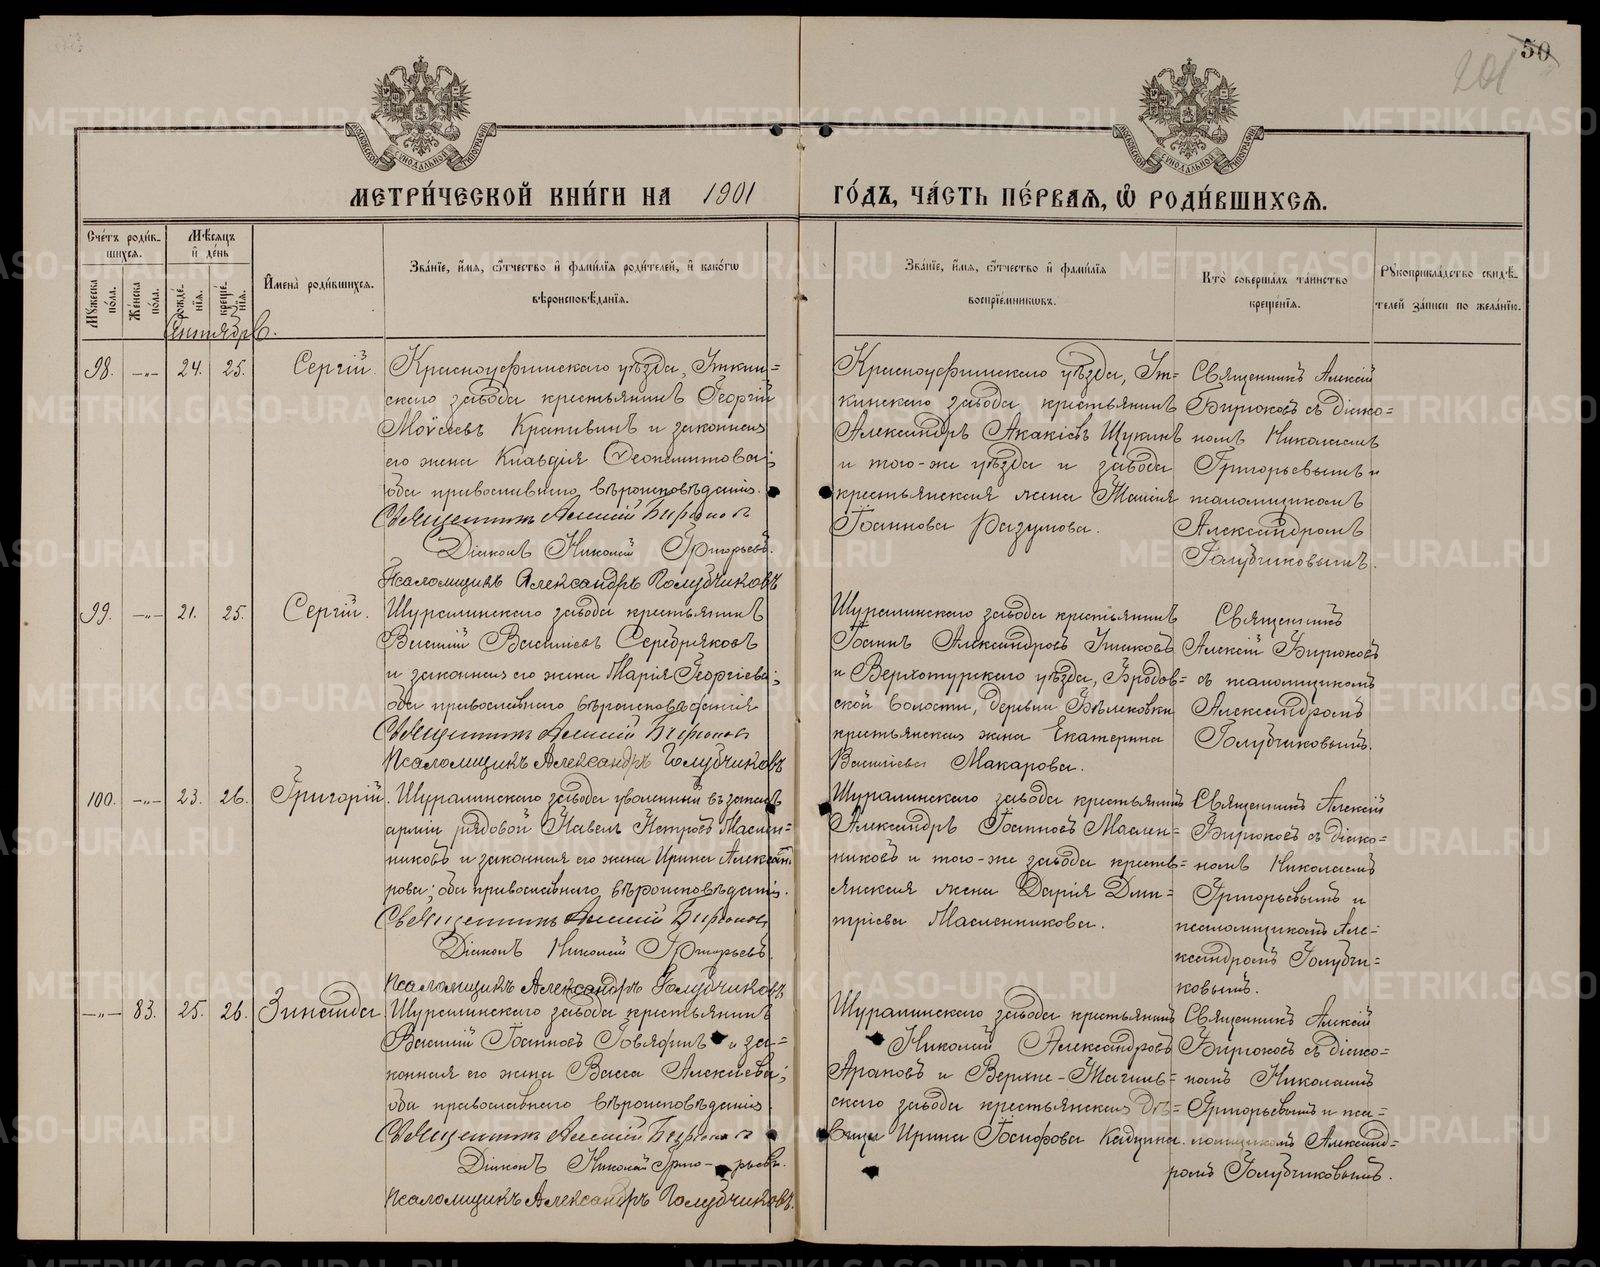 50
201
МОСКОВСКОЙ СѴНОДАЛЬНОЙ ТИПОГРАФІИ
МОСКОВСКОЙ СѴНОДАЛЬНОЙ ТИПОГРАФІИ
МЕТРИ́ЧЕСКОЙ КНИ́ГИ НА 1901 ГО́ДЪ, ЧА́СТЬ ПЕ́РВАЯ, Ѡ҆ РОДИ́ВШИХСЯ.
Сче́тъ роди́в-
шихся.
Мѣ́сяцъ
и҆ де́нь
И҆мена̀ роди́вшихся.
Зва́нїе, и҆́мя, ѻ҆́тчество и҆ фами́лїя роди́телей, и҆ како́гѡ
вѣроисповѣ́данїя.
Зва́нїе, и҆́мя, ѻ҆́тчество и҆ фами́лїя
воспрїе́мникѡвъ.
Кто̀ соверша́лъ та́инство
креще́нїя.
Рꙋкоприкла́дство свидѣ́-
телей за́писи по жела́нїю.
Мꙋ́жеска по́ла.
Же́нска по́ла.
рожде́-нїя.
креще́-нїя.
Сентябрь.
98. —"— 24. 25. Сергій.
Красноуфимскаго уѣзда, Иткин=
скаго завода крестьянинъ Георгій
Моѵсеевъ Крапивинъ и законная
его жена Клавдія Феоктистова;
оба православнаго вѣроисповѣданія.
Священникъ Алексій Бирюковъ
Діаконъ Николай Григорьевъ.
Псаломщикъ Александръ Голубчиковъ
Красноуфимскаго уѣзда, Ит=
кинскаго завода крестьянинъ
Александръ Акакіевъ Щукинъ
и того-же уѣзда и завода
крестьянская жена Таисія
Іоаннова Разумова.
Священникъ Алексій
Бирюковъ съ діако=
номъ Николаемъ
Григорьевымъ и
псаломщикомъ
Александромъ
Голубчиковымъ.
99. —"— 21. 25. Сергій.
Шуралинскаго завода крестьянинъ
Василій Васильевъ Серебряковъ
и законная его жена Марія Георгіева;
оба православнаго вѣроисповѣданія
Священникъ Алексій Бирюковъ
Псаломщикъ Александръ Голубчиковъ
Шуралинскаго завода крестьянинъ
Іоаннъ Александровъ Ушаковъ
и Верхотурскаго уѣзда, Бродов=
ской волости, деревни
крестьянская жена Екатерина
Васильева Макарова.
Священникъ
Алексій Бирюковъ
съ псаломщикомъ
Александромъ
Голубчиковымъ.
100. —"— 23. 26. Григорій.
Шуралинскаго завода уволенный въ запасъ
арміи рядовой Павелъ Петровъ Маслен=
никовъ и законная его жена Ирина Александ
рова; оба православнаго вѣроисповѣданія.
Священникъ Алексій Бирюковъ
Діаконъ Николай Григорьевъ.
Псаломщикъ Александръ Голубчиковъ
Шуралинскаго завода крестьянинъ
Александръ Іоанновъ Маслен=
никовъ и того-же завода кресть=
янская жена Дарія Дми=
тріева Масленникова.
Священникъ Алексій
Бирюковъ съ діако=
номъ Николаемъ
Григорьевымъ и
псаломщикомъ Але=
ксандромъ Голубчи=
ковымъ.
—"— 83. 25. 26. Зинаида.
Шуралинскаго завода крестьянинъ
Василій Іоанновъ Говяринъ и за=
конная его жена Васса Алексѣева;
оба православнаго вѣроисповѣданія.
Священникъ Алексій Бирюковъ
Діаконъ Николай Григо-рьевъ.
Псаломщикъ Александръ Голубчиковъ.
Шуралинскаго завода крестьянинъ
Николай Александровъ
Араповъ и Верхне-Тагиль=
скаго завода крестьянская дѣ=
вица Ирина Іосифова Кадцина.
Священникъ Алексій
Бирюковъ съ діако=
номъ Николаемъ
Григорьевымъ и пса=
ломщикомъ Александ=
ромъ Голубчиковымъ.
METRIKI.GASO-URAL.RU